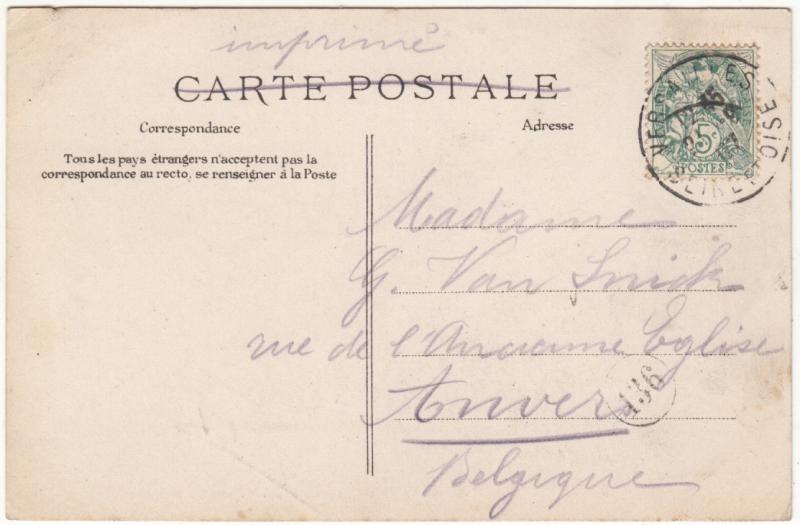 imprimé
CARTE POSTALE
Correspondance
Adresse
Tous les pays étrangers n'acceptent pas la
correspondance au recto, se renseigner à la Poste
5c
POSTES
VERSAILLES
SEINE ET OISE
Madame
G. Van Snick
rue de l'Ancienne Eglise
Anvers
136
Belgique